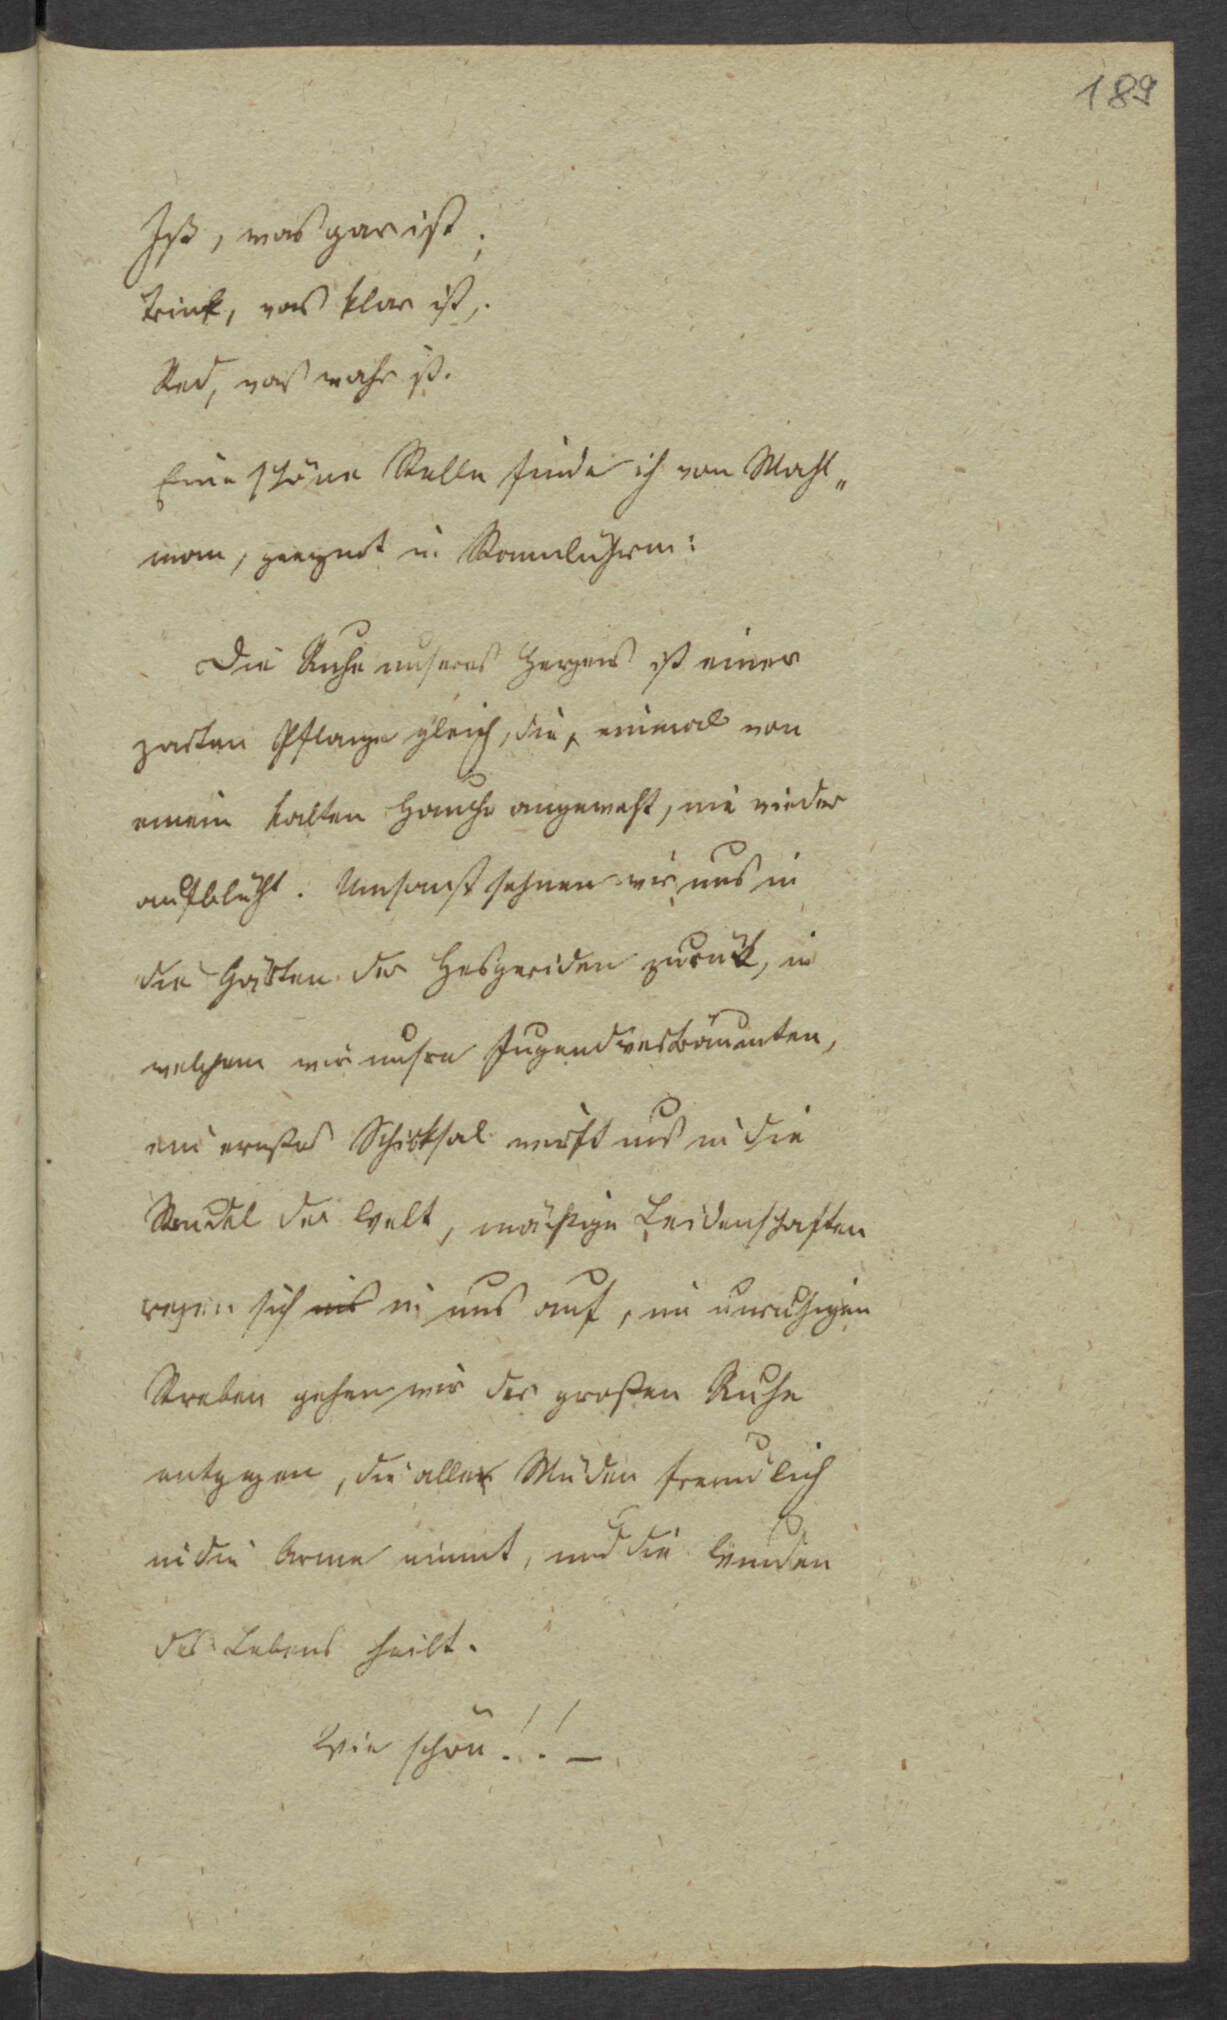 189
Iß, was gar ist;
Trink, was klar ist,.
Red, was wahr ist.
Eine schöne Stelle finde ich von Mahl„
man, geeignet in Stammbüchern:
Die Ruhe unseres Herzens ist einer
zarten Pflanze gleich, die, einmal von
einem kalten Hauche angeweht, nie wieder
aufblüht. Umsonst sehnen wir uns in
die Gärten der Hesperiden zurück, in
welchem wir unsre Jugend verträumten,
ein ernstes Schicksal wirft uns in die
Strudel der Welt, mächtige Leidenschaften
regen sich in uns auf, im unruhigen
Streben gehen wir der großen Ruhe
entgegen, die alle Müden freundlich
in die Arme nimmt, und die Wunden
des Lebens heilt.
Wie schön!! –